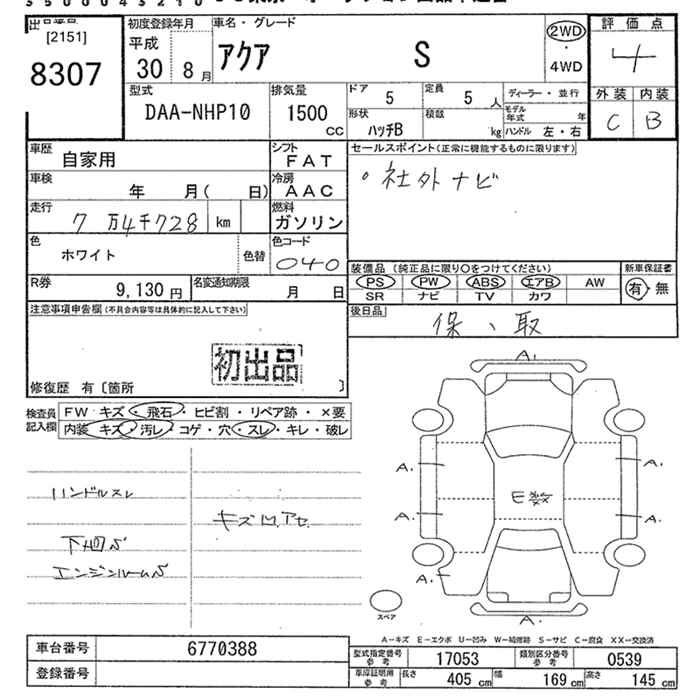 出品番号
[2151]
8307
初度登録年月
平成
30 8月
車名・グレード
アクア S
2WD
・
4WD
評価点
4
外装 内装
C B
型式
DAA-NHP10
排気量
1500 CC
ドア 5
定員 5 人
ディーラー・並行
形状 ハッチB
積載 kg
モデル年式 年
ハンドル 左・右
車歴 自家用
シフト FAT
車検 年 月( 日)
冷房 AAC
走行 7万4千728 km
燃料 ガソリン
色 ホワイト 色替
色コード 040
R券 9,130円
名変通知期限 月 日
セールスポイント(正常に機能するものに限ります)
・社外ナビ
装備品(純正品に限り○をつけてください)
新車保証書
PS PW ABS エアB AW
有・無
SR ナビ TV カワ
後日品
保、取
注意事項申告欄(不具合内容等は具体的に記入して下さい)
初出品
修復歴 有〔箇所 〕
検査員
記入欄
FW キズ・飛石・ヒビ割・リペア跡・×要
内装 キズ・汚レ・コゲ・穴・スレ・キレ・破レ
ハンドルスレ
キズ凹アセ
下回S
エンジンルームS
A.
A. A.
E
A. A.
A.
A.
スペア
A-キズ E-エクボ U-凹み W-補修跡 S-サビ C-腐食 XX-交換済
車台番号 6770388
登録番号
型式指定番号 参考 17053
類別区分番号 参考 0539
車庫証明用 参考 長さ 405 cm 幅 169 cm 高さ 145 cm